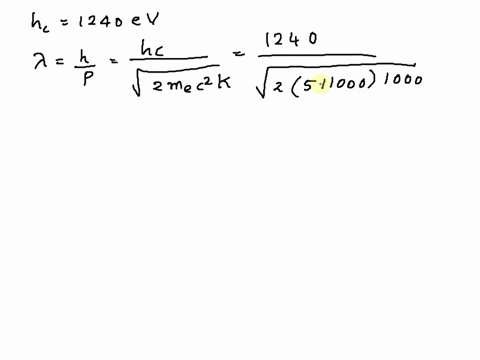 hc = 1240 eV
λ = h/P = hc/√(2 mₑc²K) = 1240/√(2 (511000) 1000)